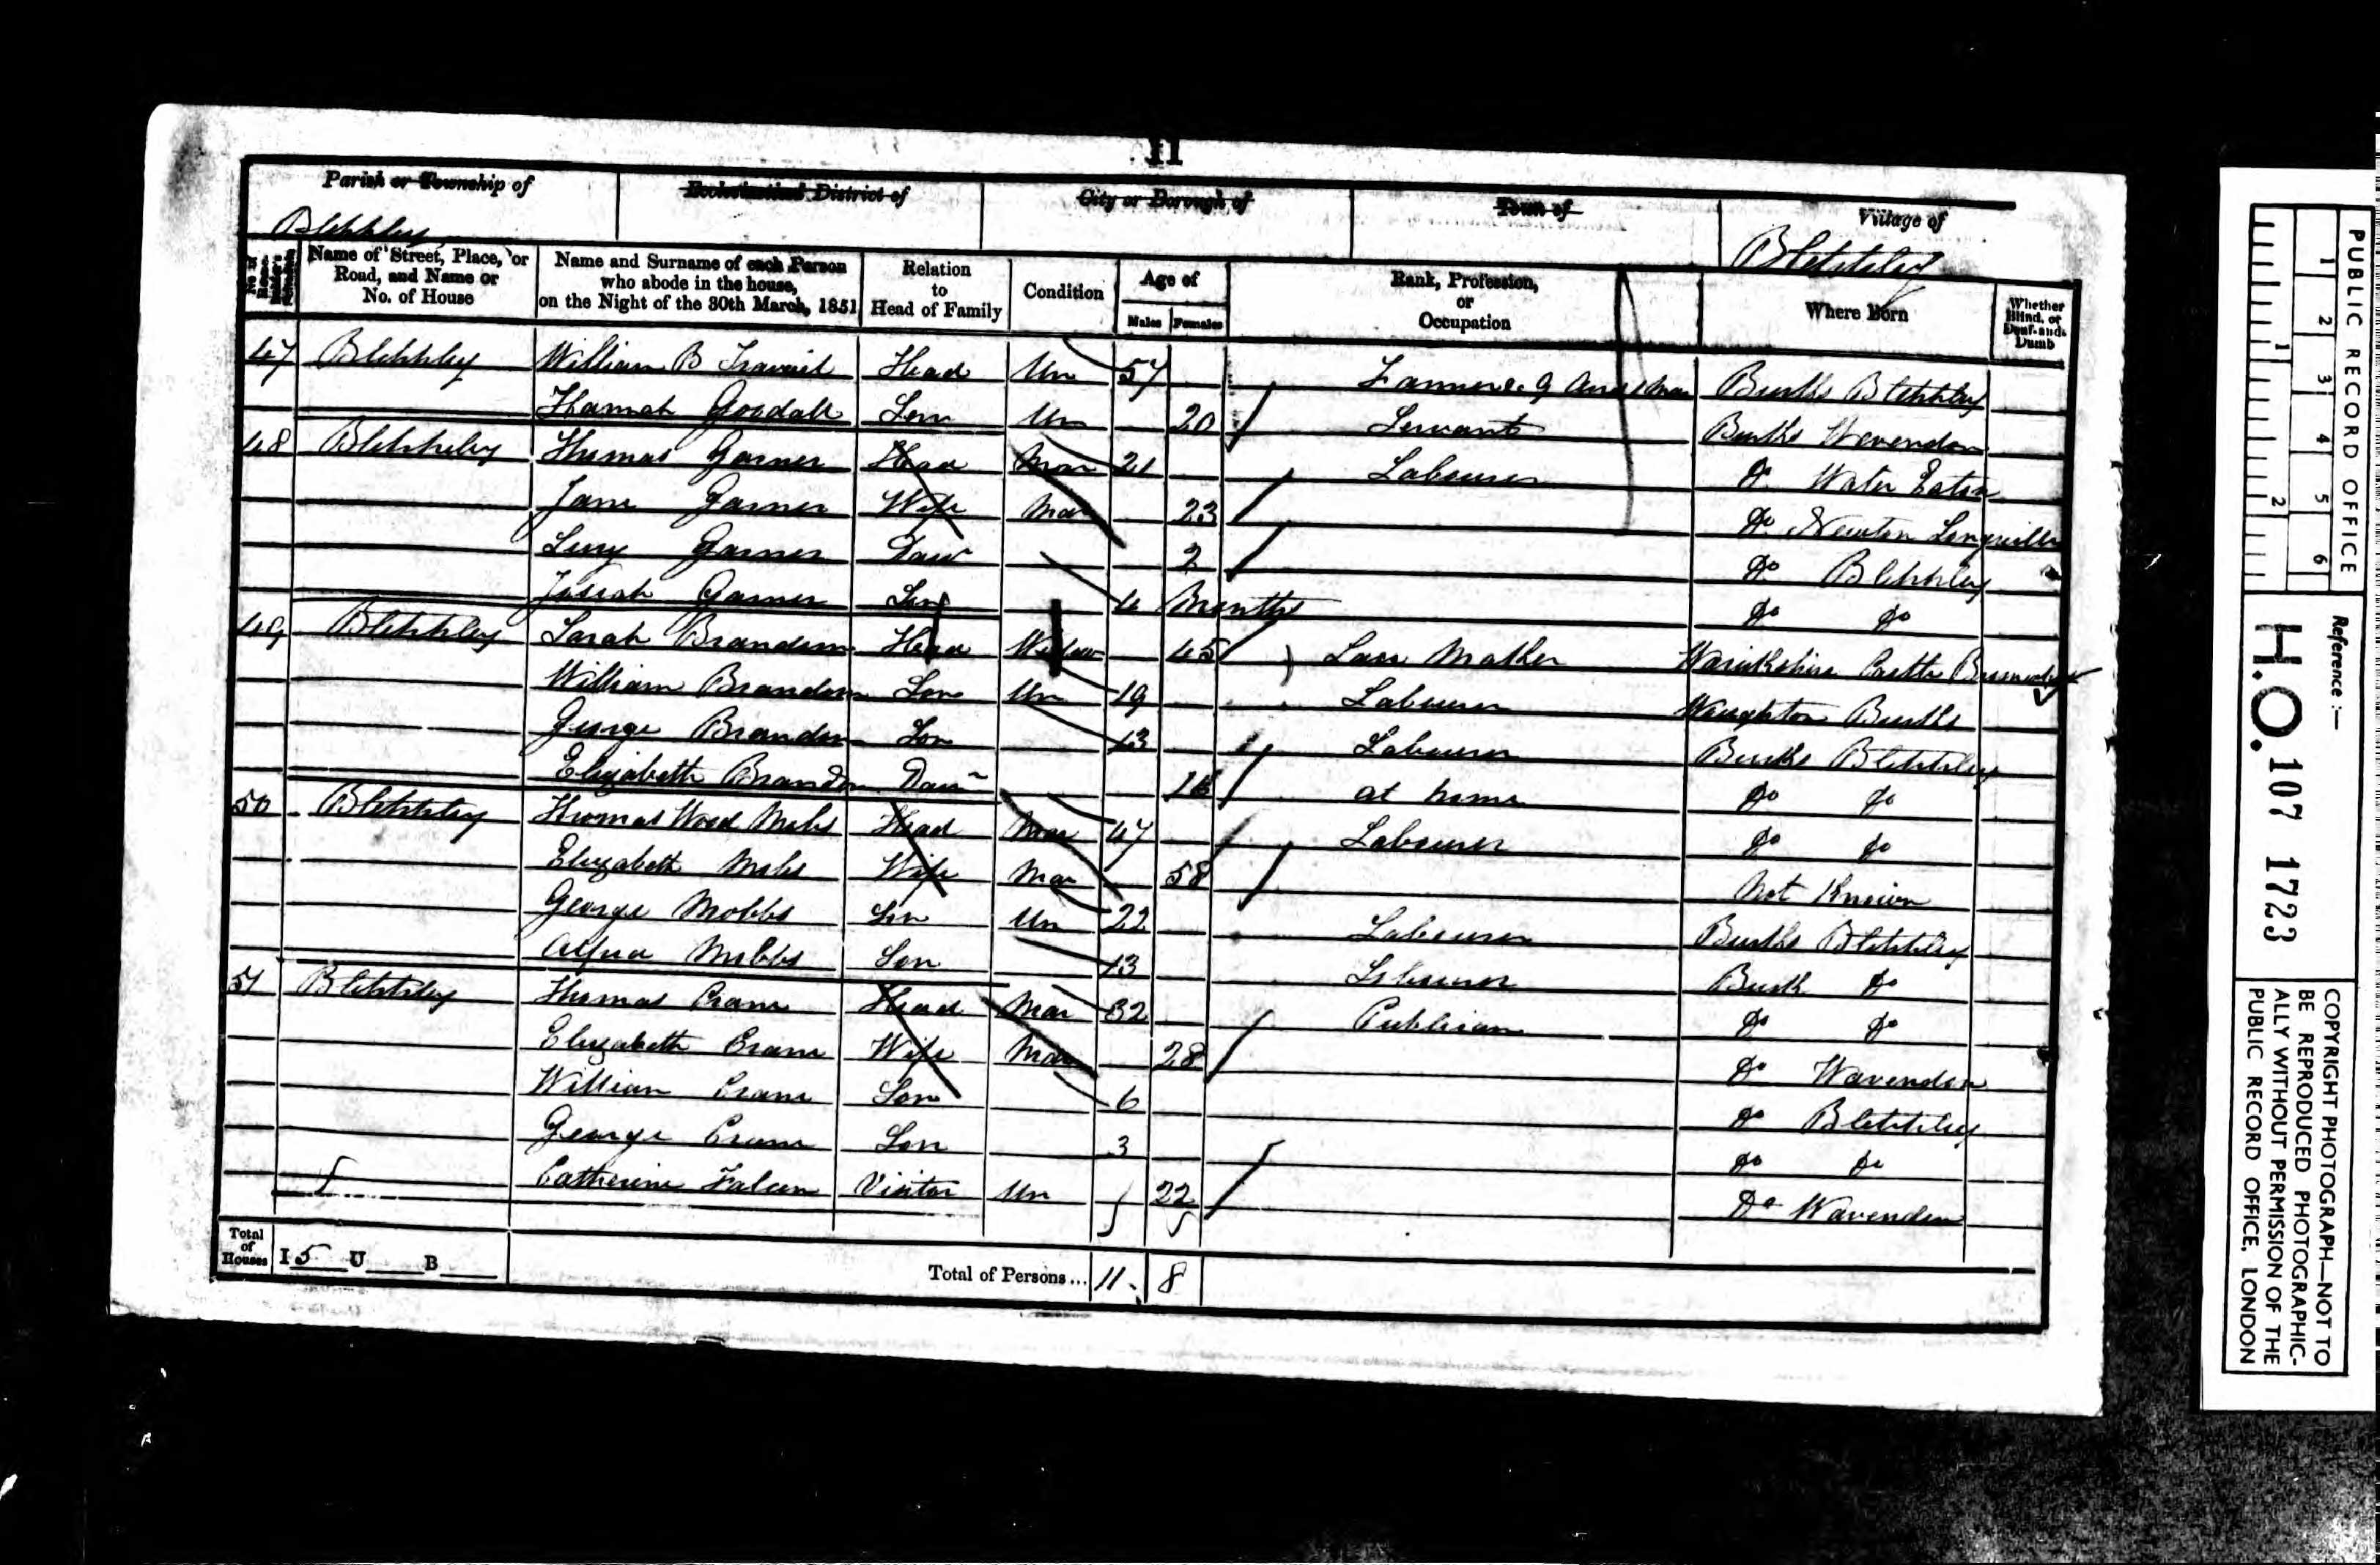 11
Parish or Township of
Ecclesiastical District of
City or Borough of
Town of
Village of
Bletchley
Bletchley
Name of Street, Place, or Road, and Name or No. of House
Name and Surname of each Person who abode in the house, on the Night of the 30th March, 1851
Relation to Head of Family
Condition
Age of
Males Females
Rank, Profession, or Occupation
Where Born
Whether Blind, or Deaf-and-Dumb
47 Bletchley William B Head Un 57 Bucks Bletchley
Hannah Goodall Serv Un 20 Servant Bucks Wavendon
48 Bletchley Thomas Garner Head Mar Labourer Do Water Eaton
Jane Garner Wife Mar 23 Do Newton Longville
Garner Daur 2 Do Bletchley
Josiah Garner Son 4 Months Do Do
49 Bletchley Sarah Brandom Head Widow 45 Lace Maker Castle
William Brandom Son Un 19 Labourer Woughton Bucks
George Brandom Son 13 Labourer Bucks Bletchley
Elizabeth Brandom Daur 16 at home Do Do
50 Bletchley Thomas Wood Mobbs Head Mar 47 Labourer Do Do
Elizabeth Mobbs Wife Mar 58 Not Known
George Mobbs Son Un 22 Labourer Bucks Bletchley
Mobbs Son 13 Labourer Buck Do
51 Bletchley Thomas Crane Head Mar 32 Publican Do Do
Elizabeth Crane Wife Mar 28 Do Wavendon
William Crane Son 6 Do Bletchley
George Crane Son 3 Do Do
Catherine Visitor Un 22 Do Wavendon
Total of Houses I 5 U B
Total of Persons... 11 8
PUBLIC RECORD OFFICE
1 2 3 4 5 6
1 2
Reference :—
H.O. 107 1723
COPYRIGHT PHOTOGRAPH—NOT TO
BE REPRODUCED PHOTOGRAPHIC-
ALLY WITHOUT PERMISSION OF THE
PUBLIC RECORD OFFICE, LONDON